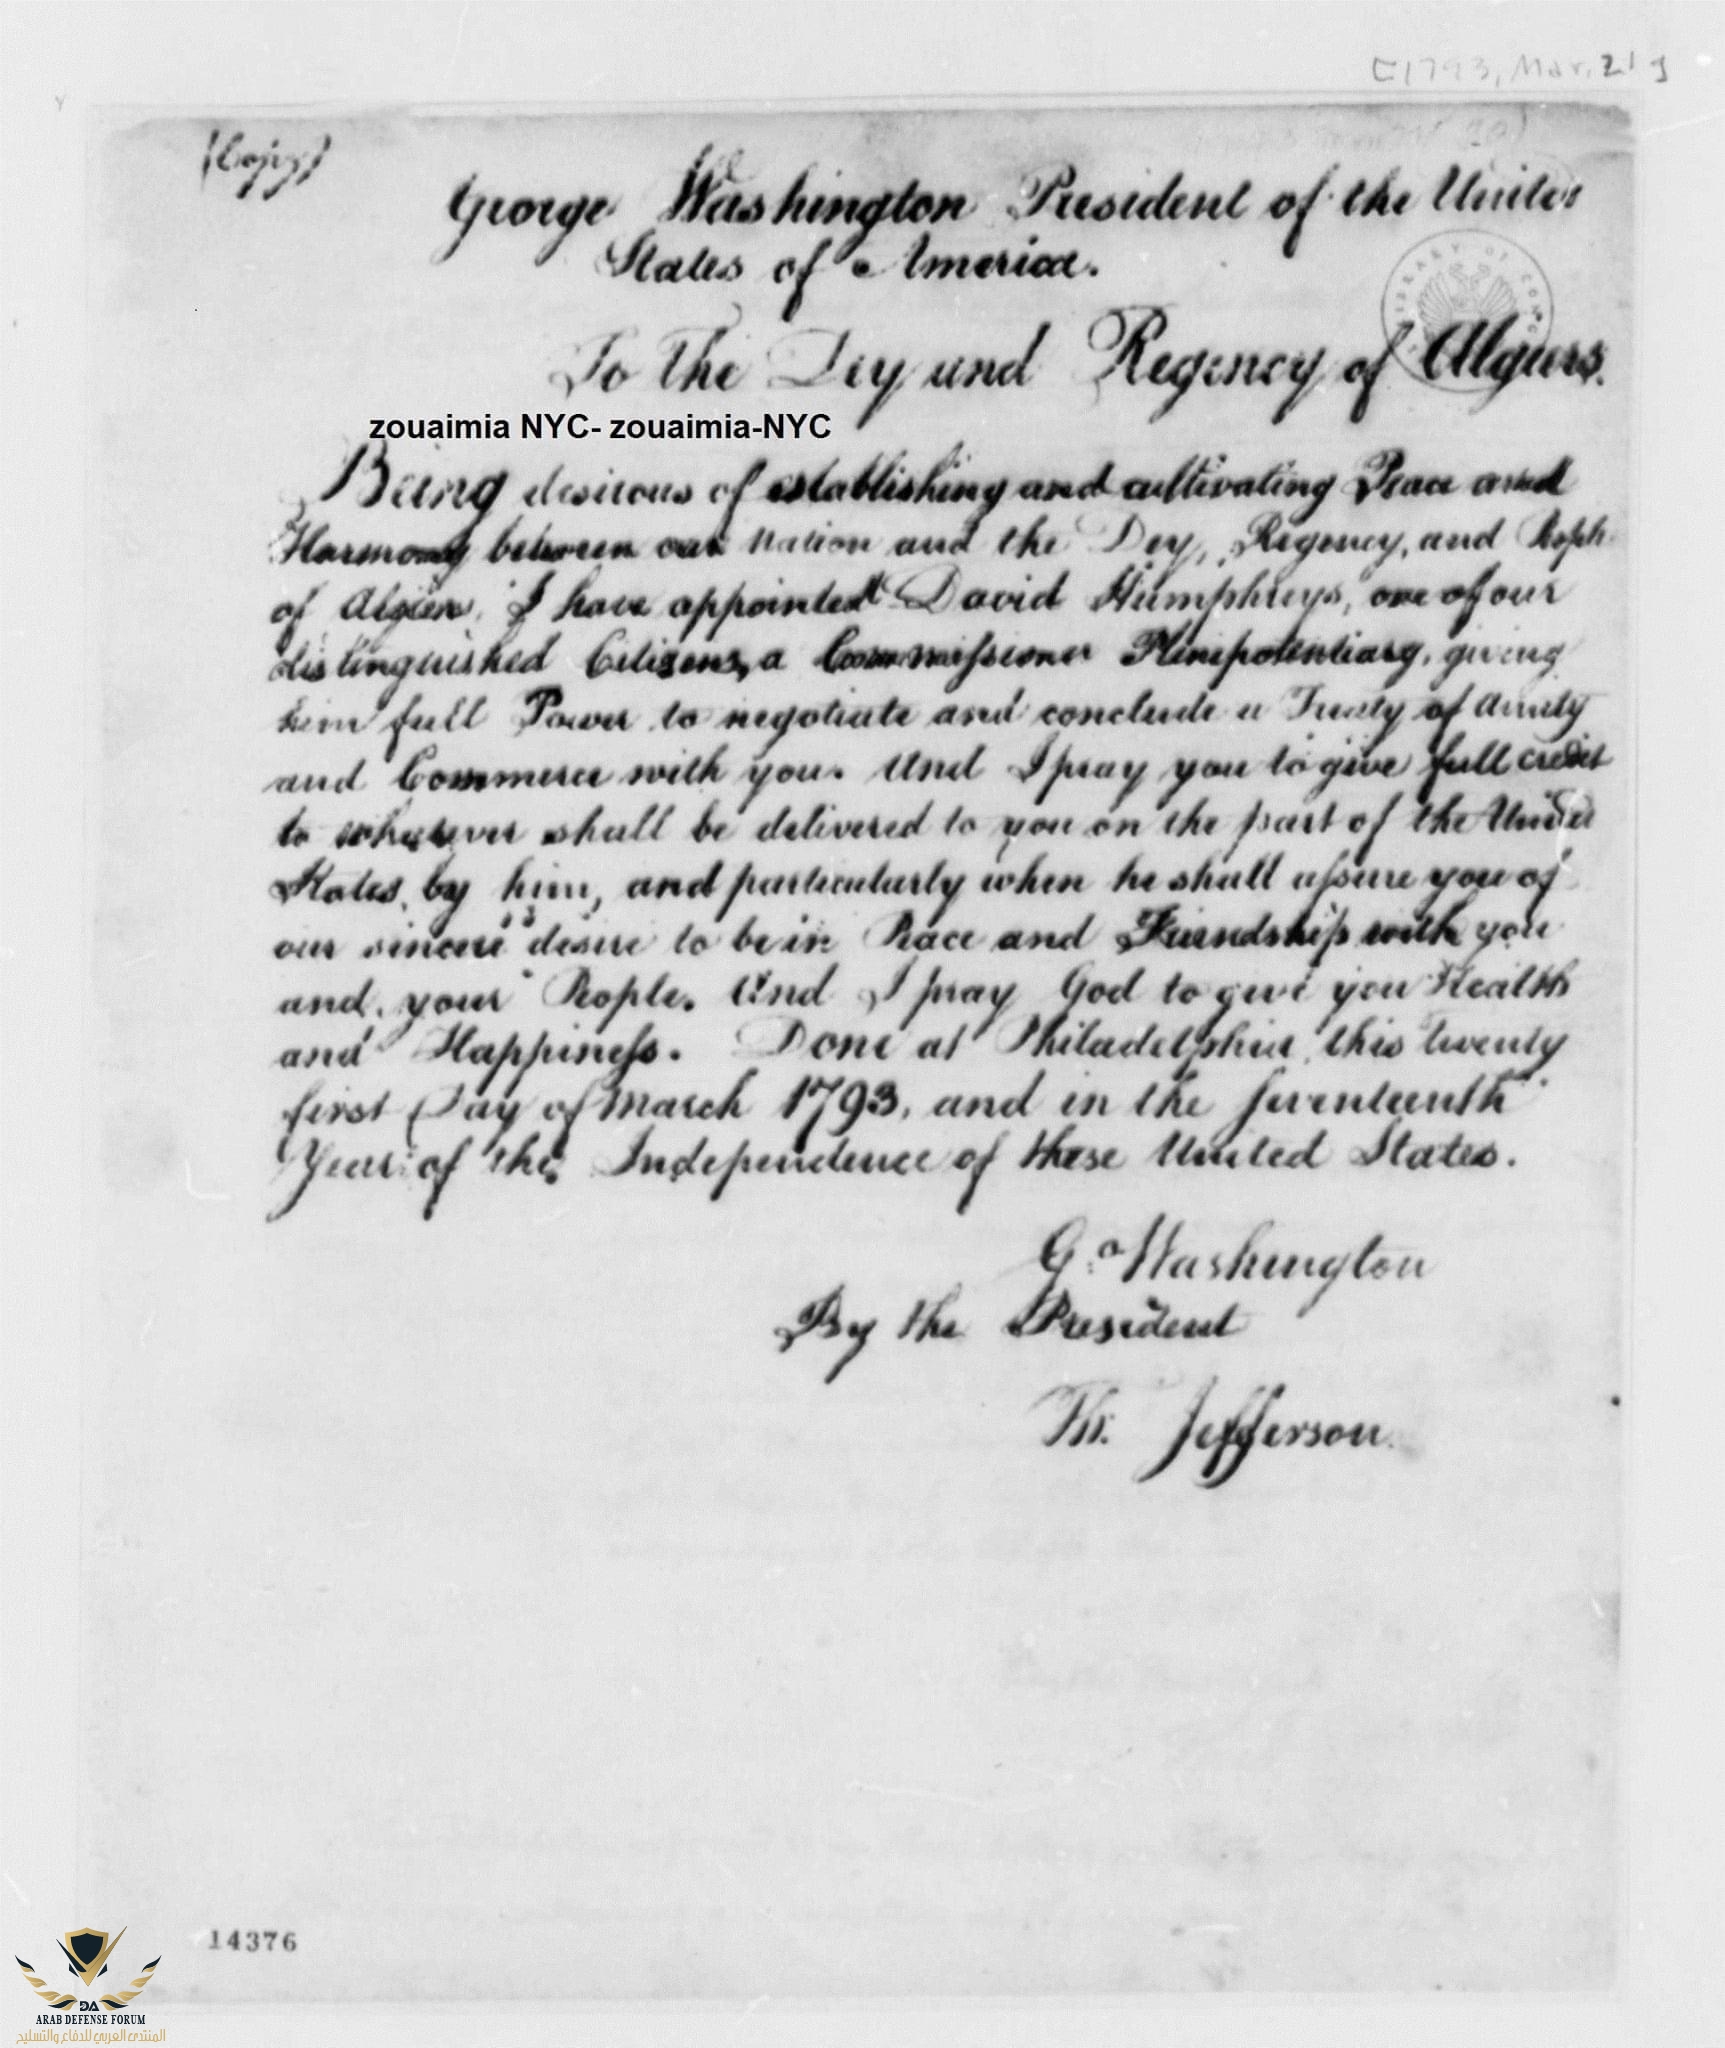 [1793, Mar. 21]
(Copy)
George Washington President of the United
States of America.
LIBRARY OF CONG
To the Dey and Regency of Algiers.
zouaimia NYC- zouaimia-NYC
Being desirous of establishing and cultivating Peace and
Harmony between our Nation and the Dey, Regency, and People
of Algiers, I have appointed David Humphreys, one of our
distinguished Citizens, a Commissioner Plenipotentiary, giving
him full Power to negotiate and conclude a Treaty of Amity
and Commerce with you. And I pray you to give full credit
to whatever shall be delivered to you on the part of the United
States, by him, and particularly when he shall assure you of
our sincere desire to be in Peace and Friendship with you
and your People. And I pray God to give you Health
and Happiness. Done at Philadelphia this twenty
first Day of March 1793, and in the seventeenth
Year of the Independence of these United States.
Go Washington
By the President
Th. Jefferson.
14376
DA
ARAB DEFENSE FORUM
المنتدى العربي للدفاع والتسليح